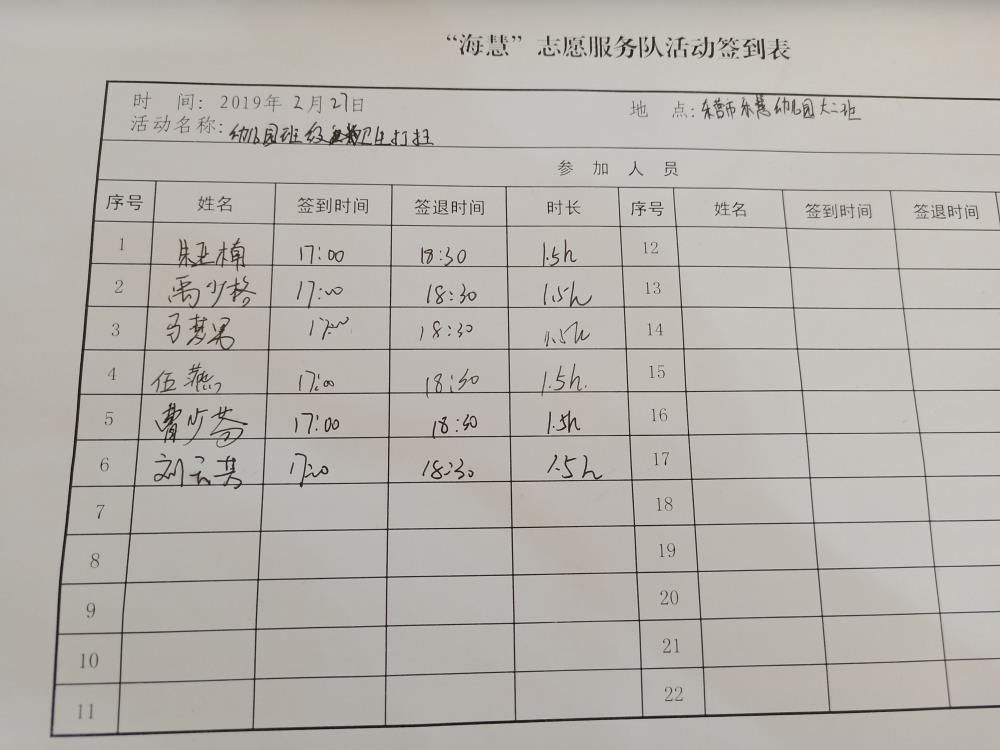 “海慧”志愿服务队活动签到表
时 间: 2019年 2月 27日 地 点: 东营市东慧幼儿园大二班
活动名称: 幼儿园班级卫生打扫
参 加 人 员
序号 姓名 签到时间 签退时间 时长 序号 姓名 签到时间 签退时间
1 朱亚楠 17:00 18:30 1.5h 12
2 禹少格 17:00 18:30 1.5h 13
3 马梦男 17:00 18:30 1.5h 14
4 伍燕 17:00 18:30 1.5h. 15
5 曹少芬 17:00 18:30 1.5h 16
6 刘云其 17:00 18:30 1.5h 17
7 18
8 19
9 20
10 21
11 22